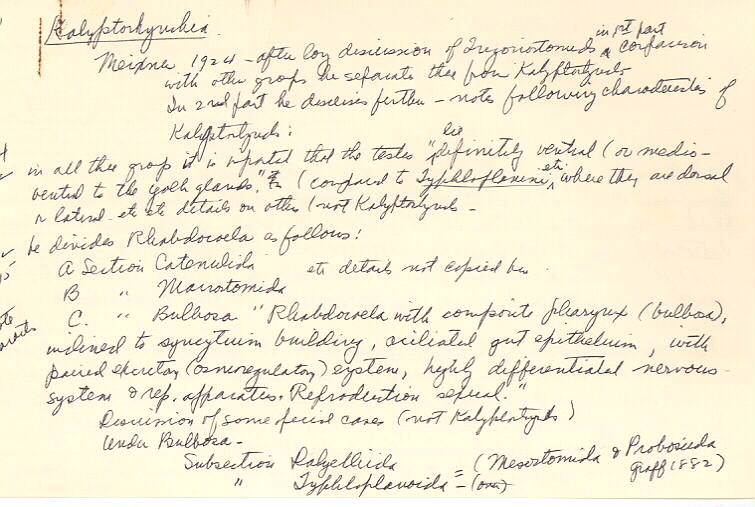 Kalyptorhynchia
Meixner 1924 - after long discussion of Trigonostomids in 1st part & comparison
with other groups he separates them from Kalyptorhynchs
In 2nd part he discusses further - notes following characteristics of
Kalyptorhynchs:
in all the group it is reported that the testes "lie definitely ventral (or medio-
ventral to the yolk glands." (compared to Typhloplanini etc, where they are dorsal
or lateral - etc etc details on others (not Kalyptorhynchs -
he divides Rhabdocoela as follows:
A Section Catenulida etc details not copied here.
B " Macrostomida
C. " Bulbosa "Rhabdocoela with composite pharynx (bulbosa),
inclined to syncytium building, aciliated gut epithelium, with
paired excretory (osmoregulatory) system, highly differentiated nervous
system & rep. apparatus. Reproduction sexual."
Discussion of some special cases (not Kalyptorhynchs)
Under Bulbosa -
Subsection Dalyelliida
" Typhloplanoida - (over) = (Mesostomida & Proboscida
Graff 1882)